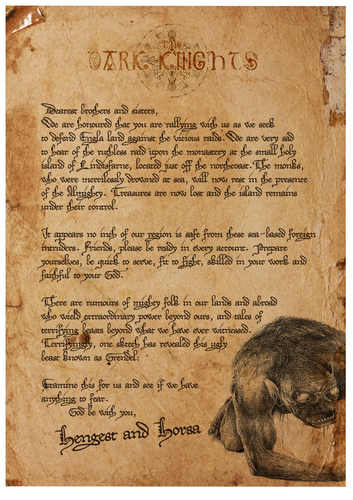 The
DARK KNIGHTS
Dearest brothers and sisters,
We are honoured that you are rallying with us as we seek
to defend Engla land against the vicious raids. We are very sad
to hear of the ruthless raid upon the monastery at the small holy
island of Lindisfarne, located just off the northcoast. The monks,
who were mercilessly drowned at sea, will now rest in the presence
of the Almighty. Treasures are now lost and the island remains
under their control.
It appears no inch of our region is safe from these sea-based foreign
intruders. Friends, please be ready in every account. Prepare
yourselves, be quick to serve, fit to fight, skilled in your work and
faithful to your God.
There are rumours of mighty folk in our lands and abroad
who wield extraordinary power beyond ours, and tales of
terrifying beasts beyond what we have ever witnessed.
Terrifyingly, one sketch has revealed this ugly
beast known as Grendel:
Examine this for us and see if we have
anything to fear.
God be with you,
Hengest and Horsa